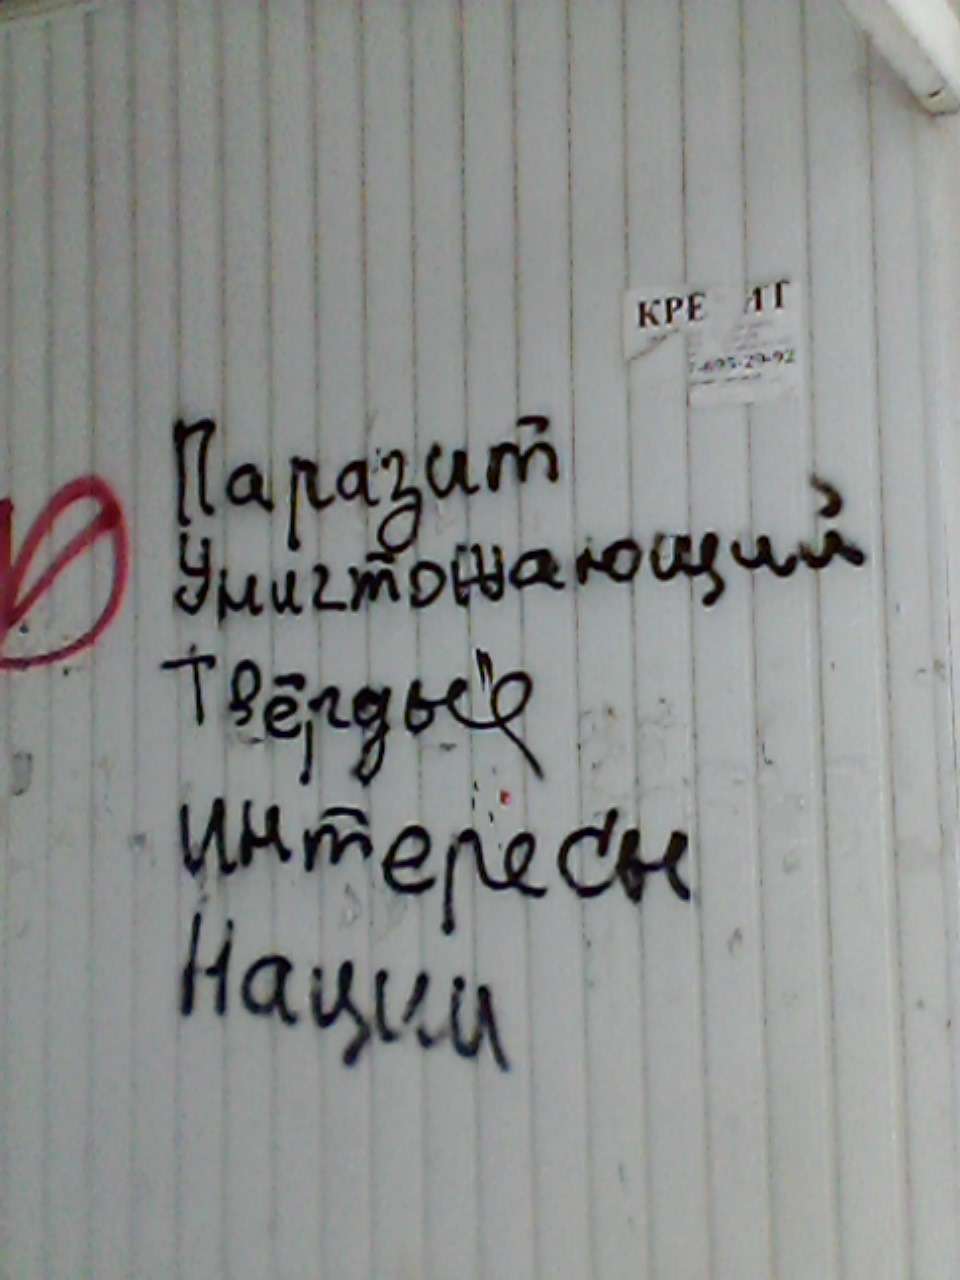 КРЕ ИТ
-695-29-92
Паразит
Уничтожающий
Твёрдые
интересы
Нации